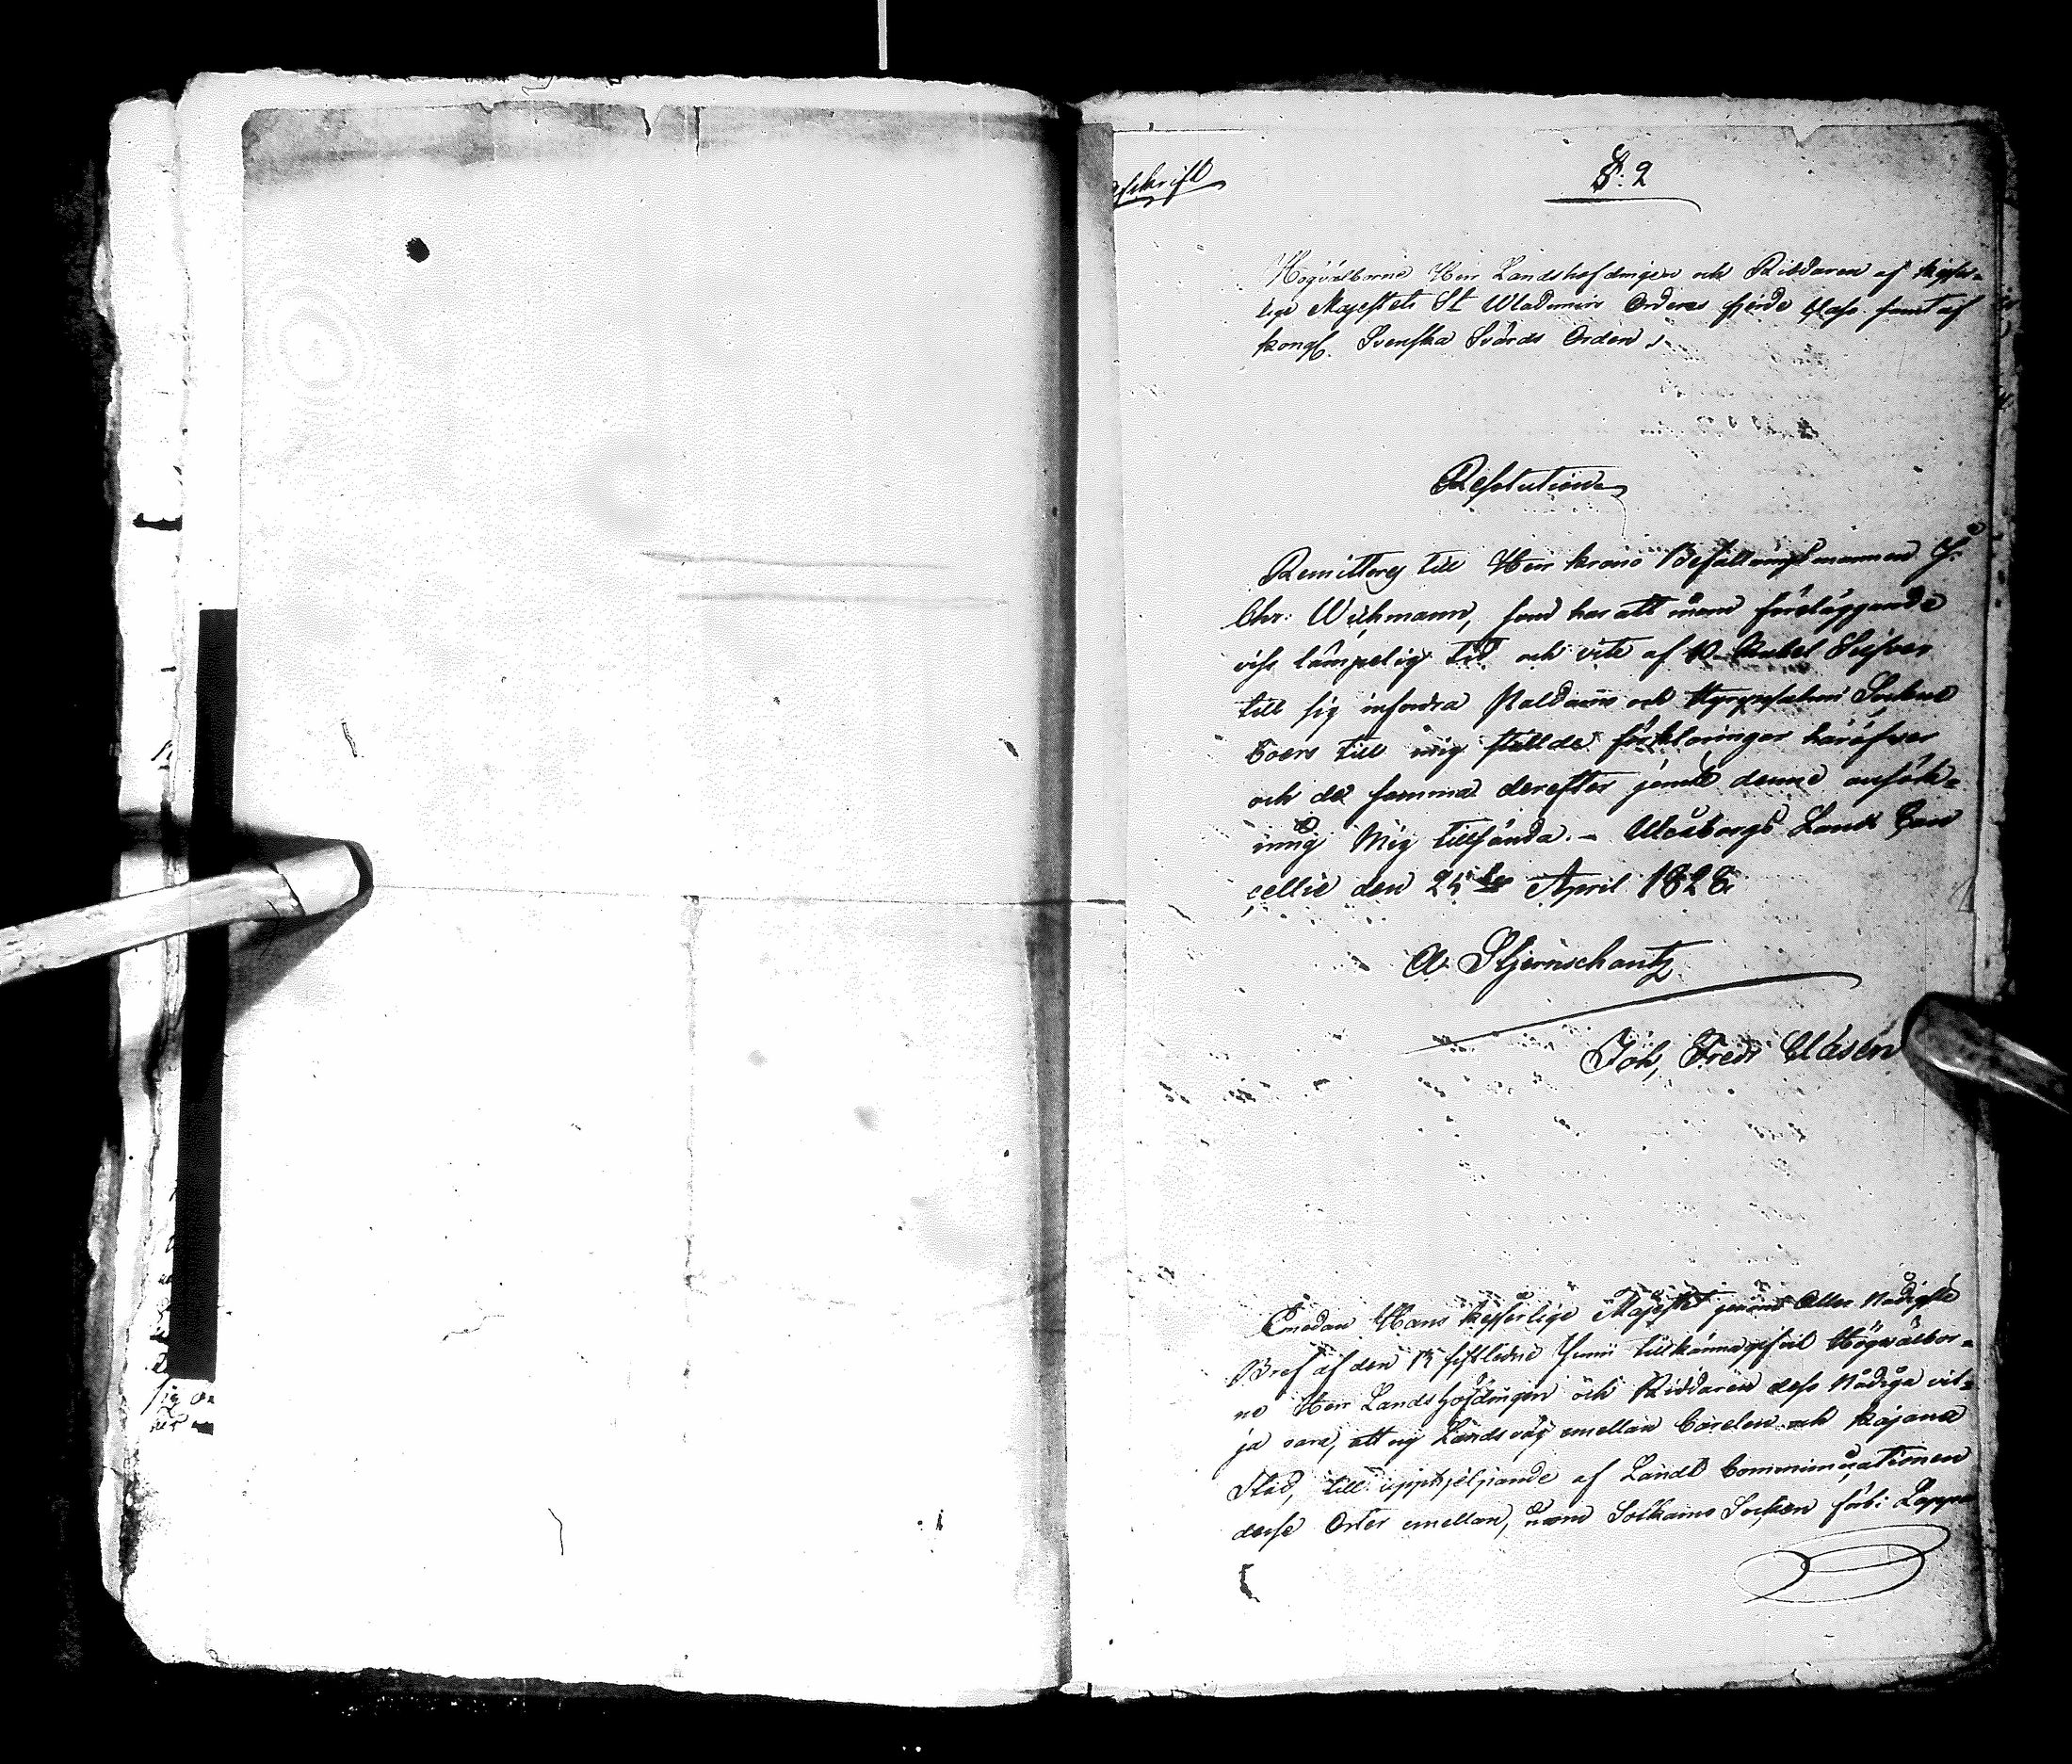 afskrift
§: 2
Högvälborne Herr Landshöfdingen och Riddaren af Kejser=
lige Majestets St Wladimirs Ordens fjerde Class samt af
Kongl. Svenska Svärds Orden,
Resolution
Remitteras till Herr Krono Befallningsmannen J.
Chr: Wichmann, som har att inom föreläggande
viss lämpelig tid och vite af 10 Rubel Silfver
till sig infordra Paldamo och Hyrynsalmi Socknes
boers till mig ställde förklaringar häröfver
och de samma derefter jemte denne ansök=
ning Mig tillsända. – Uleåborgs Lands Can
cellie den 25te April 1828.
A. Stjernschantz
Joh, Fredr Clasén
Emedan Hans Kejserlige Majestet genom Aller Nådigste
Bref af den 13 sistledne Junii tillkännagifvit Högvälbor=
ne Herr Landshöfdingen och Riddaren dess Nådiga vil=
ja vara, att ny Landsväg emellan Carelen och Kajana
Stad, till upphjelpande af Landt Communicationen
desse Orter emellan, inom Sotkamo Socken förbi